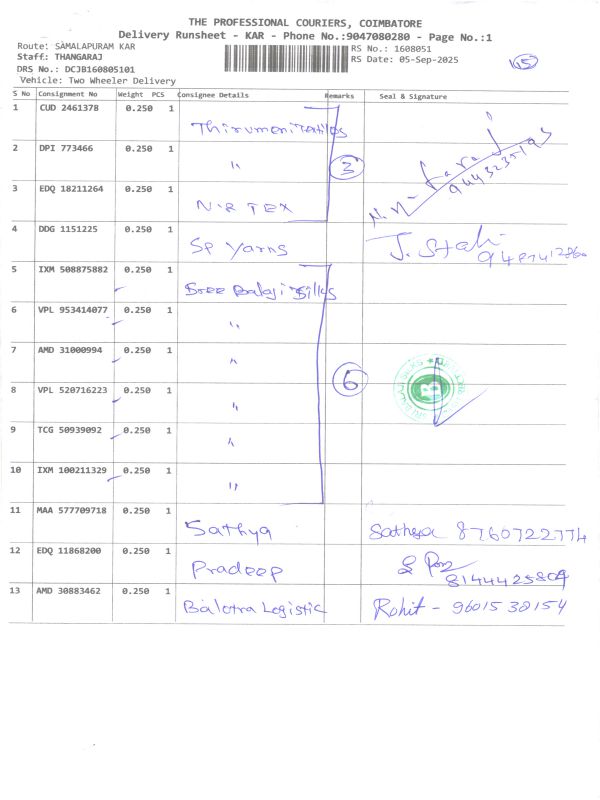 THE PROFESSIONAL COURIERS, COIMBATORE
Delivery Runsheet - KAR - Phone No.:9047080280 - Page No.:1
Route: SAMALAPURAM KAR RS No.: 1608051
Staff: THANGARAJ RS Date: 05-Sep-2025
DRS No.: DCJB160805101
Vehicle: Two Wheeler Delivery
S No Consignment No Weight PCS Consignee Details Remarks Seal & Signature
1 CUD 2461378 0.250 1 Thirumeni Textiles
2 DPI 773466 0.250 1 " 3
3 EDQ 18211264 0.250 1 N.R TEX
4 DDG 1151225 0.250 1 SP Yarns
5 IXM 508875882 0.250 1 Sree Balaji Silks
6 VPL 953414077 0.250 1 "
7 AMD 31000994 0.250 1 " 6
8 VPL 520716223 0.250 1 "
9 TCG 50939092 0.250 1 "
10 IXM 100211329 0.250 1 "
11 MAA 577709718 0.250 1 Sathya Sathya 8760722774
12 EDQ 11868200 0.250 1 Pradeep
13 AMD 30883462 0.250 1 Balotra Logistic Rohit - 9601538154